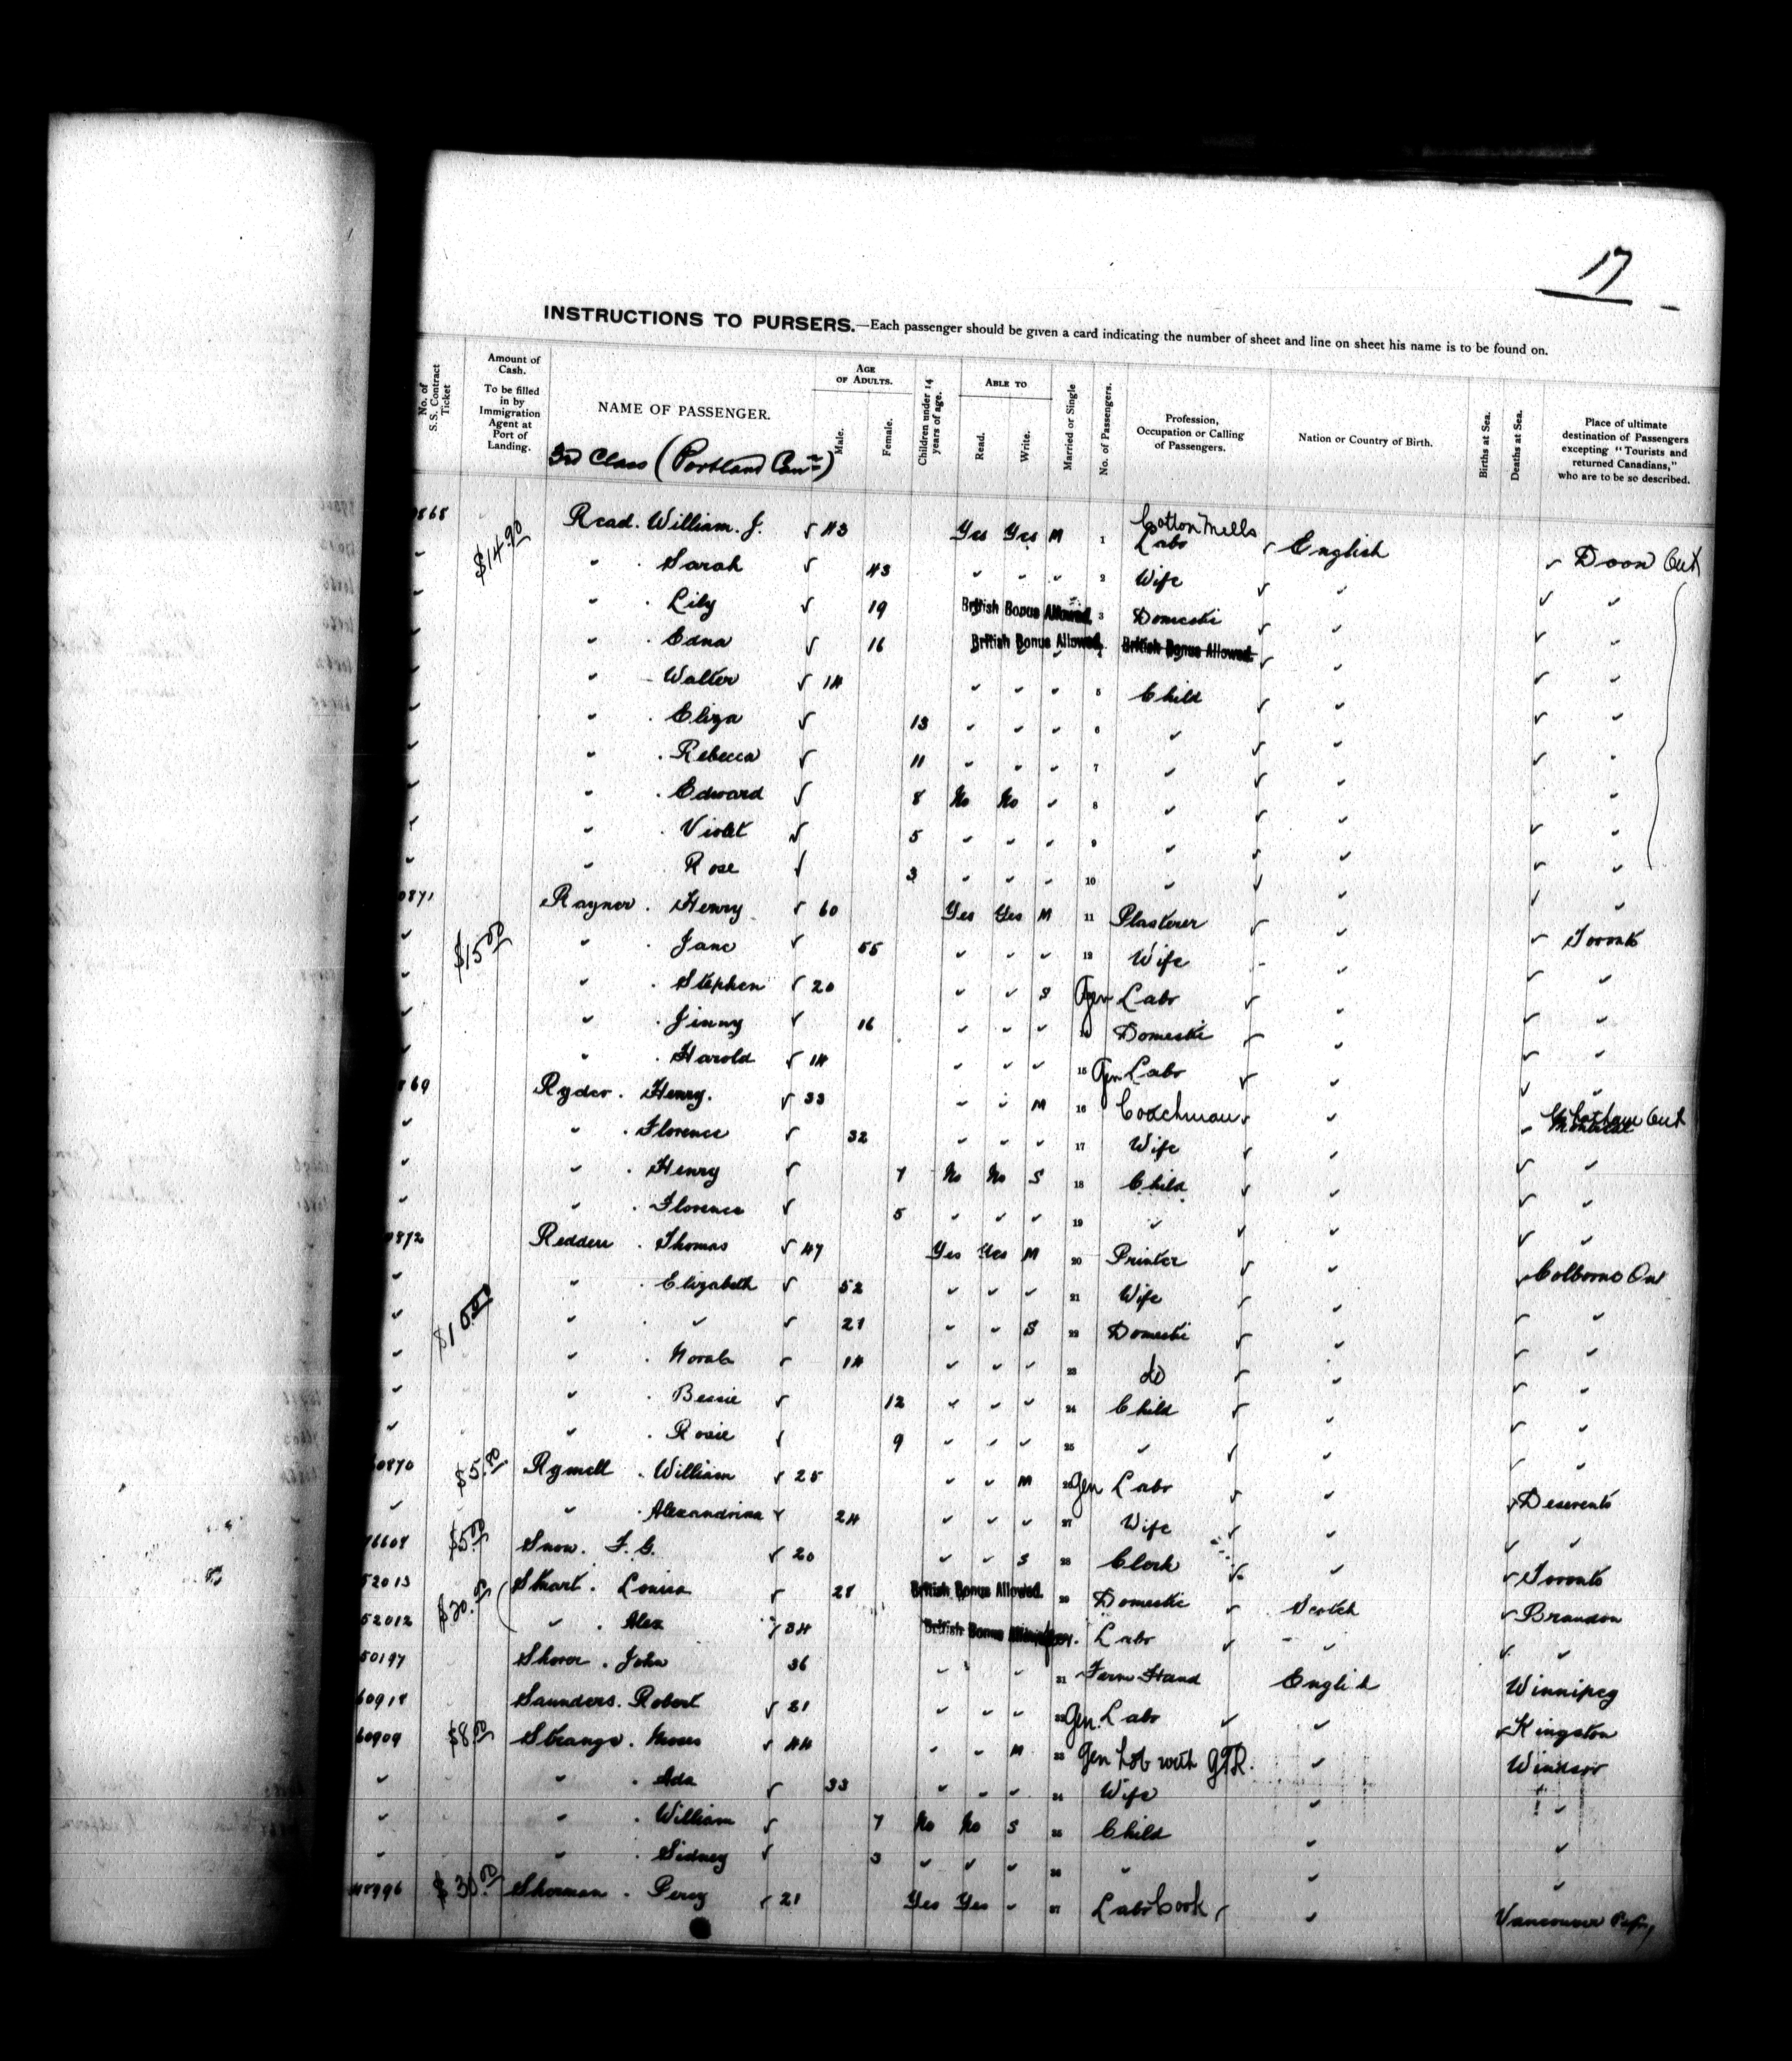 17
INSTRUCTIONS TO PURSERS.—Each passenger should be given a card indicating the number of sheet and line on sheet his name is to be found on.
No. of S.S. Contract Ticket
Amount of Cash. To be filled in by Immigration Agent at Port of Landing.
NAME OF PASSENGER.
3rd Class (Portland Can)
AGE OF ADULTS.
Male.
Female.
Children under 14 years of age.
ABLE TO
Read.
Write.
Married or Single
No. of Passengers.
Profession, Occupation or Calling of Passengers.
Nation or Country of Birth.
Births at Sea.
Deaths at Sea.
Place of ultimate destination of Passengers excepting "Tourists and returned Canadians," who are to be so described.
868 $14.90 Read. William. J. 43 Yes Yes M 1 Cotton Mills Labr English Doon Ont
" Sarah 43 " " " 2 Wife " "
" Lily 19 British Bonus Allowed. 3 Domestic " "
" Edna 16 British Bonus Allowed. British Bonus Allowed. " "
" Walter 14 " " " 5 Child " "
" Eliza 13 " " " 6 " " "
" Rebecca 11 " " " 7 " " "
" Edward 8 No No " 8 " " "
" Violet 5 " " " 9 " " "
" Rose 3 " " " 10 " " "
0871 Rayner. Henry 60 Yes Yes M 11 Plasterer " Toronto
$15.00 " Jane 55 " " " 12 Wife " "
" Stephen 20 " " S Gen Labr " "
" Jinny 16 " " " 14 Domestic " "
" Harold 14 " " " 15 Gen Labr " "
869 Ryder. Henry. 33 " " M 16 Coachman " Chatham Ont
" Florence 32 " " " 17 Wife " "
" Henry 7 No No S 18 Child " "
" Florence 5 " " " 19 " " "
0872 Redden. Thomas 47 Yes Yes M 20 Printer " Colborne On
" Elizabeth 52 " " " 21 Wife " "
$10.00 " " 21 " " S 22 Domestic " "
" Norah 14 " " " 23 do " "
" Bessie 12 " " " 24 Child " "
" Rosie 9 " " " 25 " " "
0870 $5.00 Rymell. William 25 " " M 26 Gen Labr " Deseronto
" Alexandrina 24 " " " 27 Wife " "
$5.00 Snow. F. G. 20 " " S 28 Clerk " Toronto
52013 $20.00 Stuart. Louisa 28 British Bonus Allowed. 29 Domestic Scotch Brandon
52012 " Alex 34 British Bonus Labr " "
50197 John 36 " " " 31 Farm Hand English Winnipeg
60918 Saunders. Robert 31 " " " 32 Gen. Labr " Kingston
60909 $8.00 Strange. Moses 44 " " M 33 Gen Lab with GTR. " Windsor
" Ada 33 " " " 34 Wife " "
" William 7 No No S 35 Child " "
" Sidney 3 " " " 36 " " "
$30.00 Sherman. Percy 21 Yes Yes " 37 Labr Cook " Vancouver